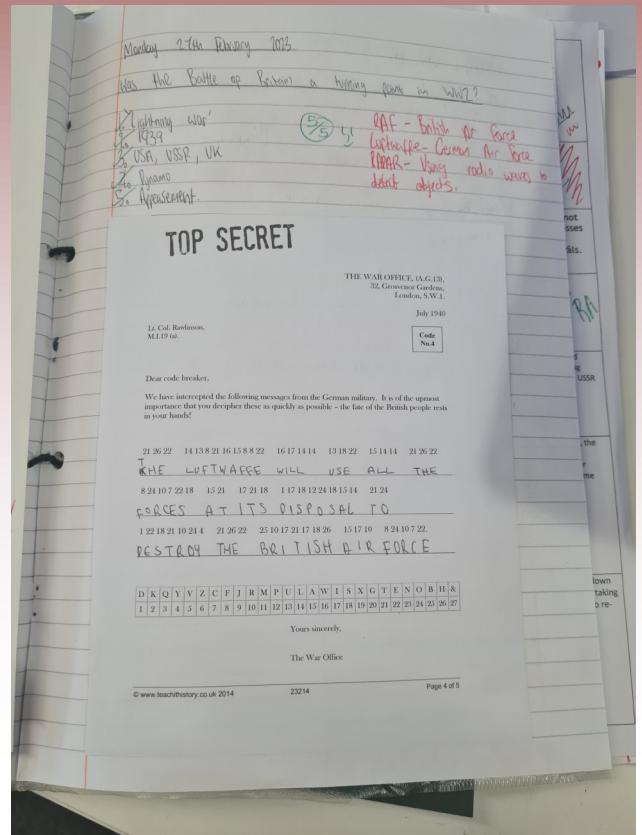 Monday 27th February 2023
Was the Battle of Britain a turning point in WW2?
1. 'Lightning war'
2. 1939
3. USA, USSR, UK
4. Dynamo
5. Appeasement.
5/5
RAF - British Air Force
Luftwaffe - German Air Force
RADAR - Using radio waves to
detect objects.
TOP SECRET
THE WAR OFFICE, (A.G.13),
32, Grosvenor Gardens,
London, S.W.1.
July 1940
Lt. Col. Rawlinson,
M.I.19 (a).
Code
No.4
Dear code breaker,
We have intercepted the following messages from the German military. It is of the upmost
importance that you decipher these as quickly as possible – the fate of the British people rests
in your hands!
21 26 22 14 13 8 21 16 15 8 8 22 16 17 14 14 13 18 22 15 14 14 21 26 22
THE LUFTWAFFE WILL USE ALL THE
8 24 10 7 22 18 15 21 17 21 18 1 17 18 12 24 18 15 14 21 24
FORCES AT ITS DISPOSAL TO
1 22 18 21 10 24 4 21 26 22 25 10 17 21 17 18 26 15 17 10 8 24 10 7 22.
DESTROY THE BRITISH AIR FORCE
D K Q Y V Z C F J R M P U L A W I S X G T E N O B H &
1 2 3 4 5 6 7 8 9 10 11 12 13 14 15 16 17 18 19 20 21 22 23 24 25 26 27
Yours sincerely,
The War Office
© www.teachithistory.co.uk 2014 23214 Page 4 of 5
not
sses
als.
RA
USSR
, the
me
lown
taking
o re-